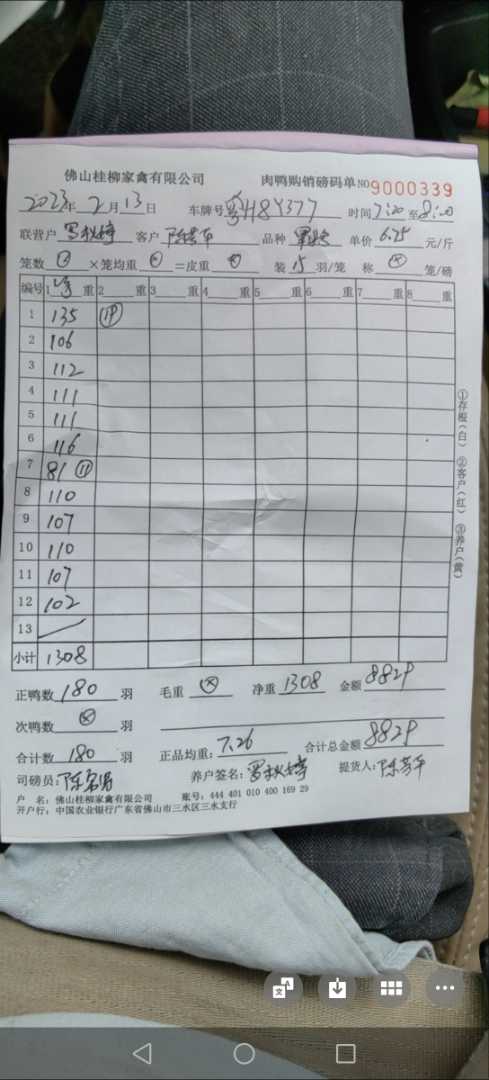 佛山桂柳家禽有限公司 肉鸭购销磅码单 NO9000339
2023年2月13日 车牌号粤H8Y377 时间7:20至8:20
联营户 客户 品种 单价 6.75 元/斤
笼数 ⊗ ×笼均重 ⊗ =皮重 ⊗ 装 15 羽/笼 称 ⊗ 笼/磅
编号 1 重 2 重 3 重 4 重 5 重 6 重 7 重 8 重
1 135 ⑲
2 106
3 112
4 111
5 111
6 116
7 81 ⑪
8 110
9 107
10 110
11 107
12 102
13
小计 1308
正鸭数 180 羽 毛重 ⊗ 净重 1308 金额 8829
次鸭数 ⊗ 羽
合计数 180 羽 正品均重: 7.26 合计总金额 8829
司磅员: 养户签名: 提货人:
户 名: 佛山桂柳家禽有限公司 账号: 444 401 010 400 169 29
开户行: 中国农业银行广东省佛山市三水区三水支行
①存根(白) ②客户(红) ③养户(黄)